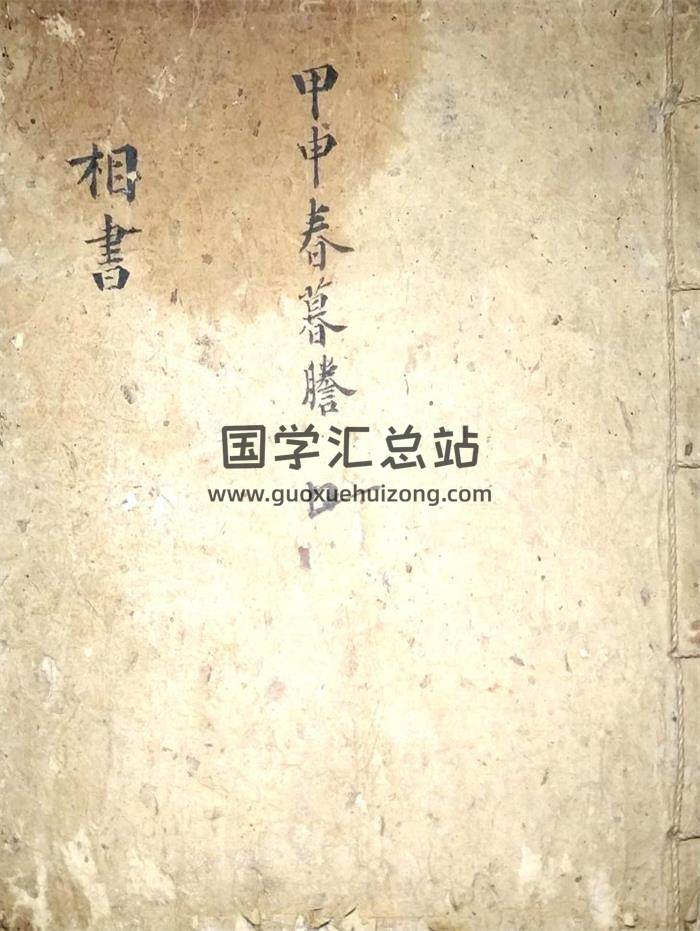 甲申春暮謄
相書
国学汇总站
www.guoxuehuizong.com